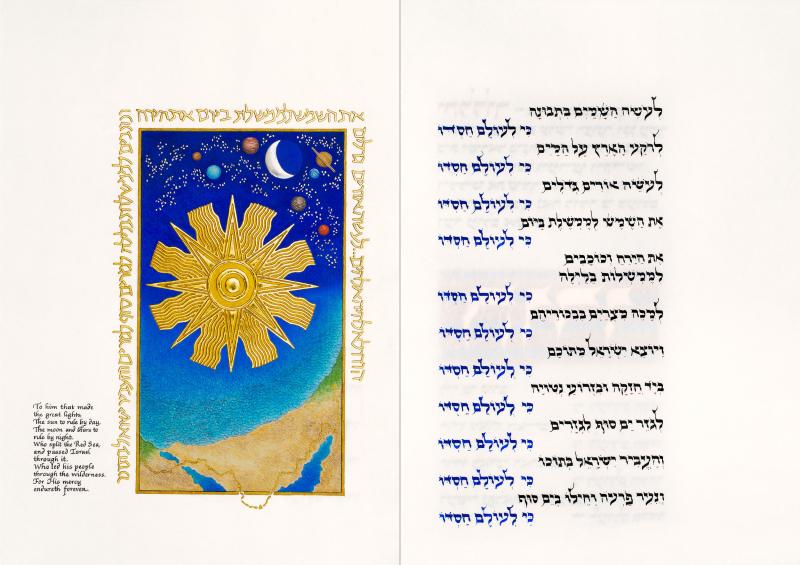 את השמש לממשלת ביום את הירח
To him that made
the great lights,
The sun to rule by day,
The moon and stars to
rule by night.
Who split the Red Sea,
and passed Israel
through it.
Who led his people
through the wilderness.
For His mercy
endureth forever.
לעשה השמים בתבונה
כי לעולם חסדו
לרקע הארץ על המים
כי לעולם חסדו
לעשה אורים גדלים
כי לעולם חסדו
את השמש לממשלת ביום
כי לעולם חסדו
את הירח וכוכבים
לממשלות בלילה
כי לעולם חסדו
למכה מצרים בבכוריהם
כי לעולם חסדו
ויוצא ישראל מתוכם
כי לעולם חסדו
ביד חזקה ובזרוע נטויה
כי לעולם חסדו
לגזר ים סוף לגזרים
כי לעולם חסדו
והעביר ישראל בתוכו
כי לעולם חסדו
ונער פרעה וחילו בים סוף
כי לעולם חסדו